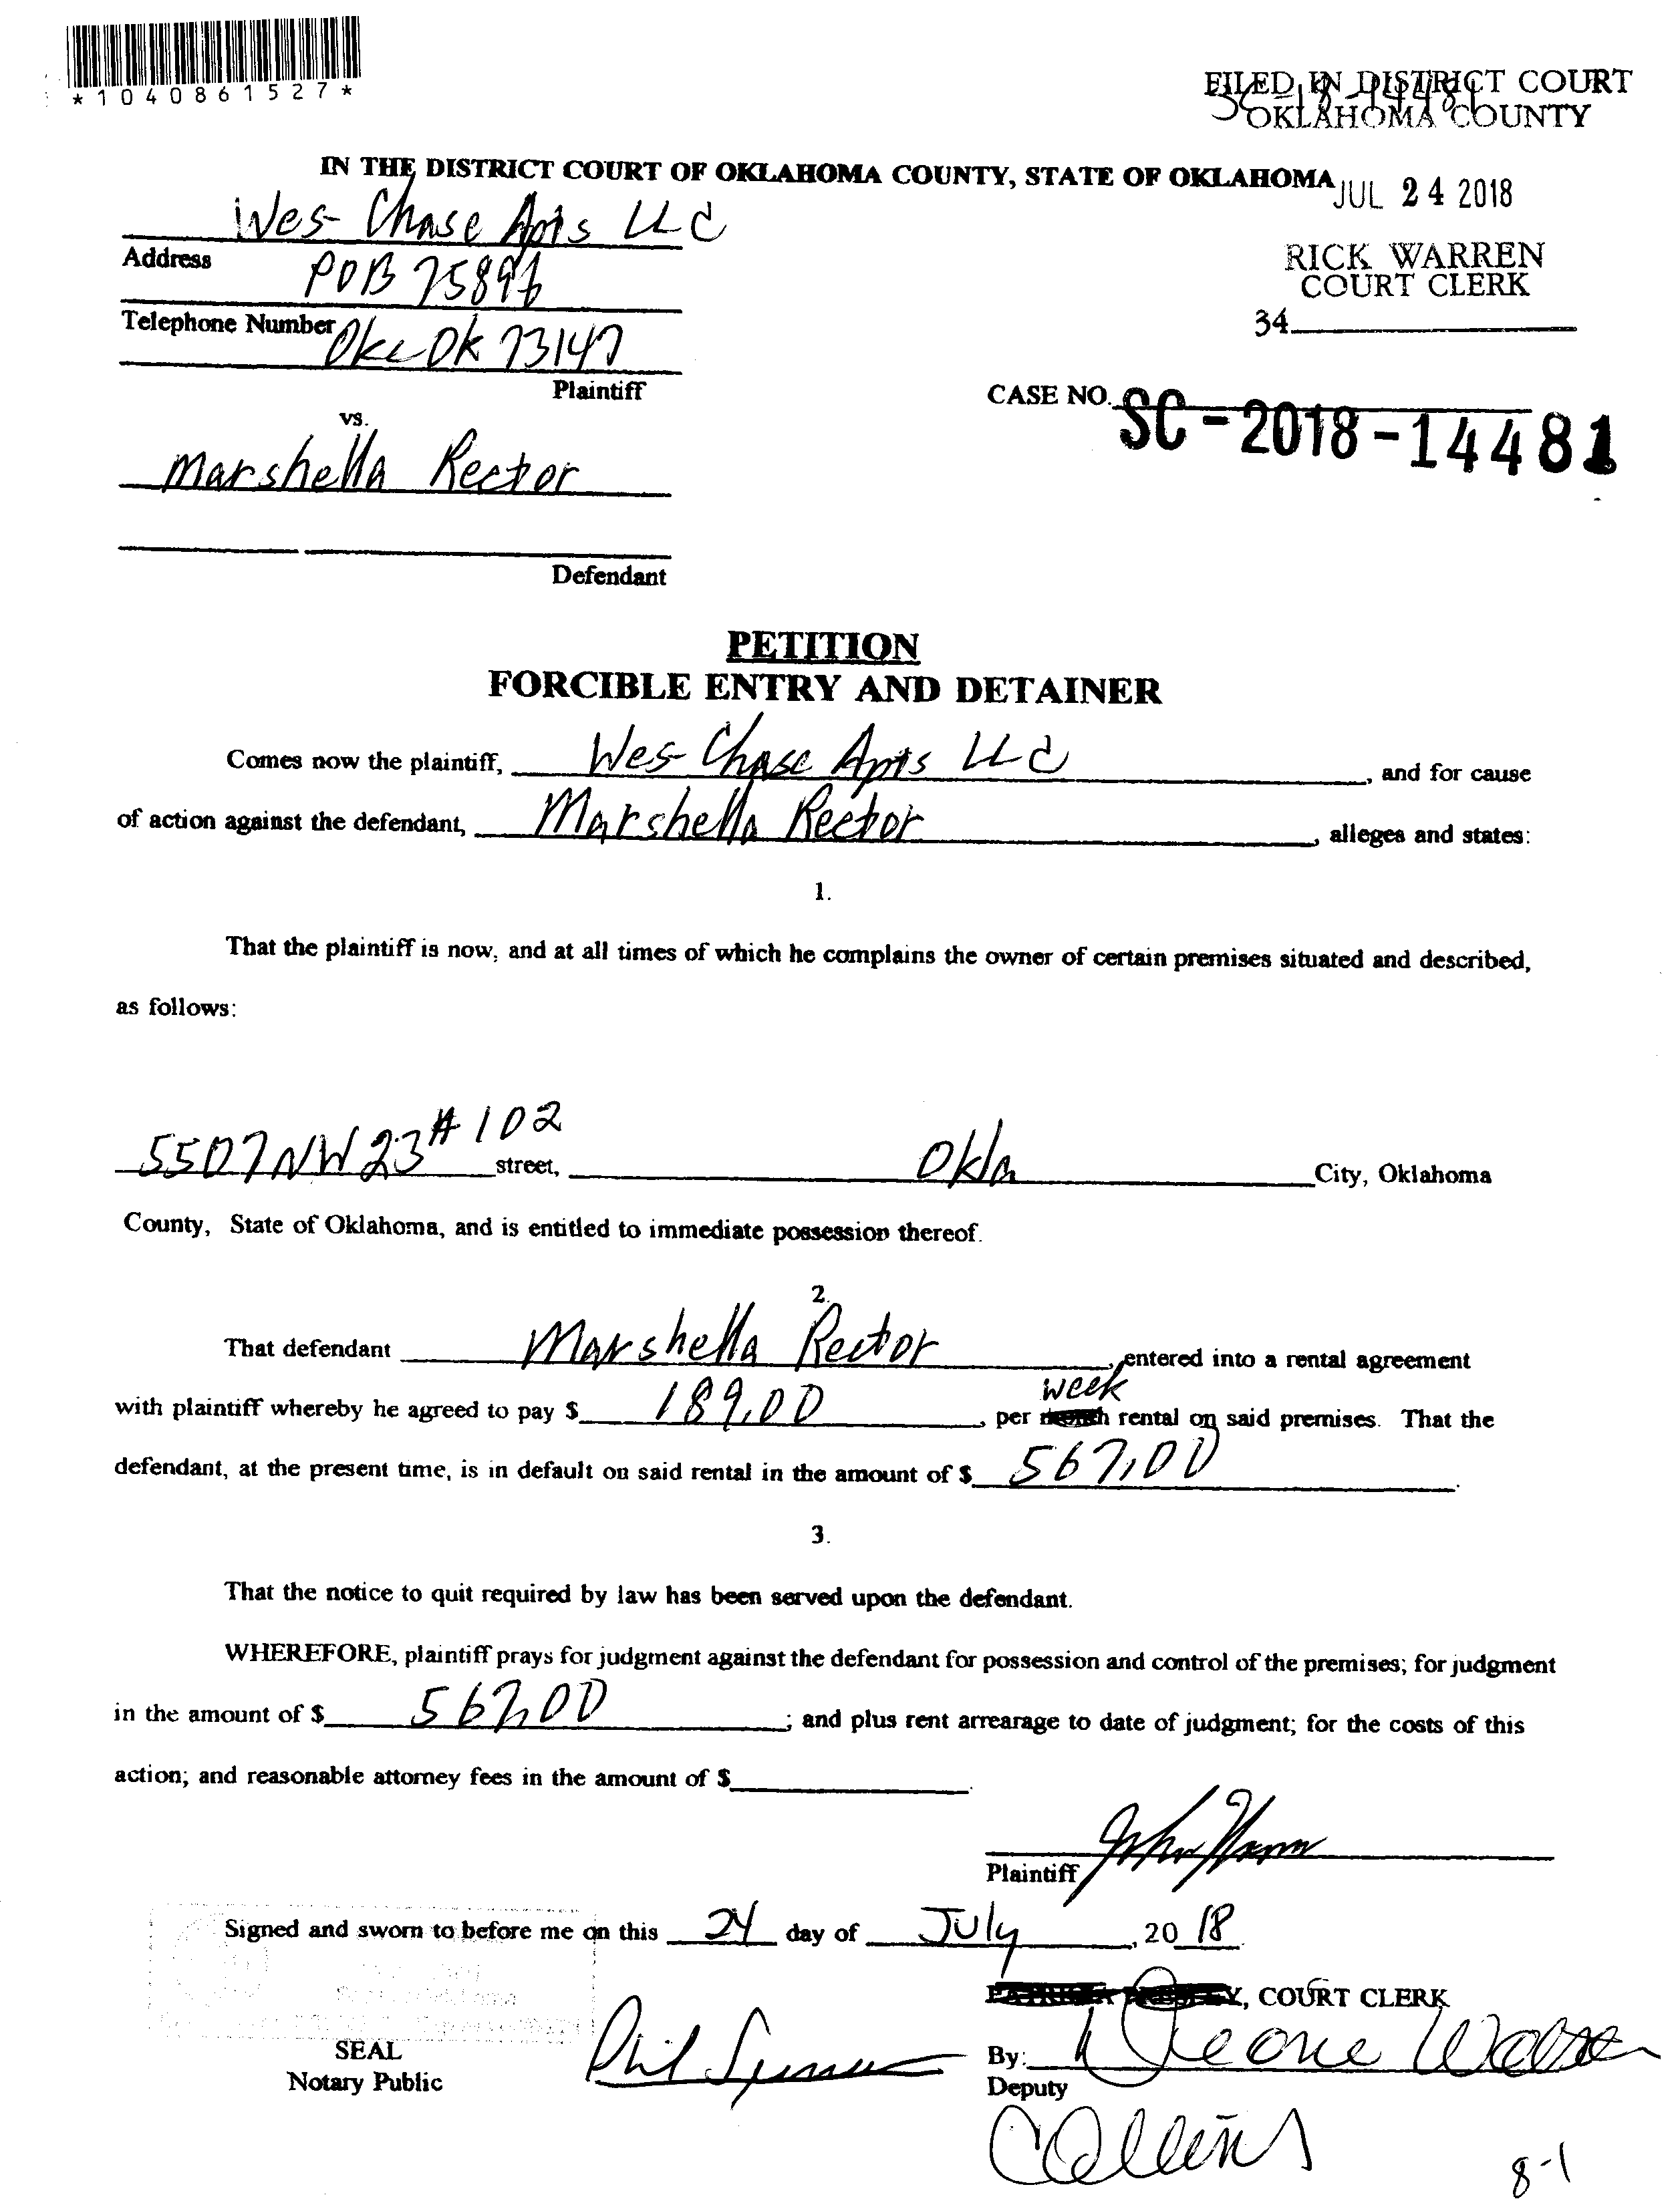 *1040861527*
FILED IN DISTRICT COURT
OKLAHOMA COUNTY
SC-18-14481
IN THE DISTRICT COURT OF OKLAHOMA COUNTY, STATE OF OKLAHOMA
JUL 24 2018
Wes-Chase Apts LLC
Address
POB 75896
RICK WARREN
COURT CLERK
Telephone Number
Okc Ok 73147
34
Plaintiff
CASE NO. SC-2018-14481
vs.
Marshella Rector
Defendant
PETITION
FORCIBLE ENTRY AND DETAINER
Comes now the plaintiff, Wes-Chase Apts LLC, and for cause
of action against the defendant, Marshella Rector, alleges and states:
1.
That the plaintiff is now, and at all times of which he complains the owner of certain premises situated and described,
as follows:
5507 NW 23 #102 street, Okla City, Oklahoma
County, State of Oklahoma, and is entitled to immediate possession thereof.
2.
That defendant Marshella Rector, entered into a rental agreement
week
with plaintiff whereby he agreed to pay $ 189.00, per month rental on said premises. That the
defendant, at the present time, is in default on said rental in the amount of $ 567.00.
3.
That the notice to quit required by law has been served upon the defendant.
WHEREFORE, plaintiff prays for judgment against the defendant for possession and control of the premises; for judgment
in the amount of $ 567.00; and plus rent arrearage to date of judgment; for the costs of this
action; and reasonable attorney fees in the amount of $
Plaintiff
Signed and sworn to before me on this 24 day of July, 20 18.
COURT CLERK
SEAL
Notary Public
By:
Deputy
Collins
8-1